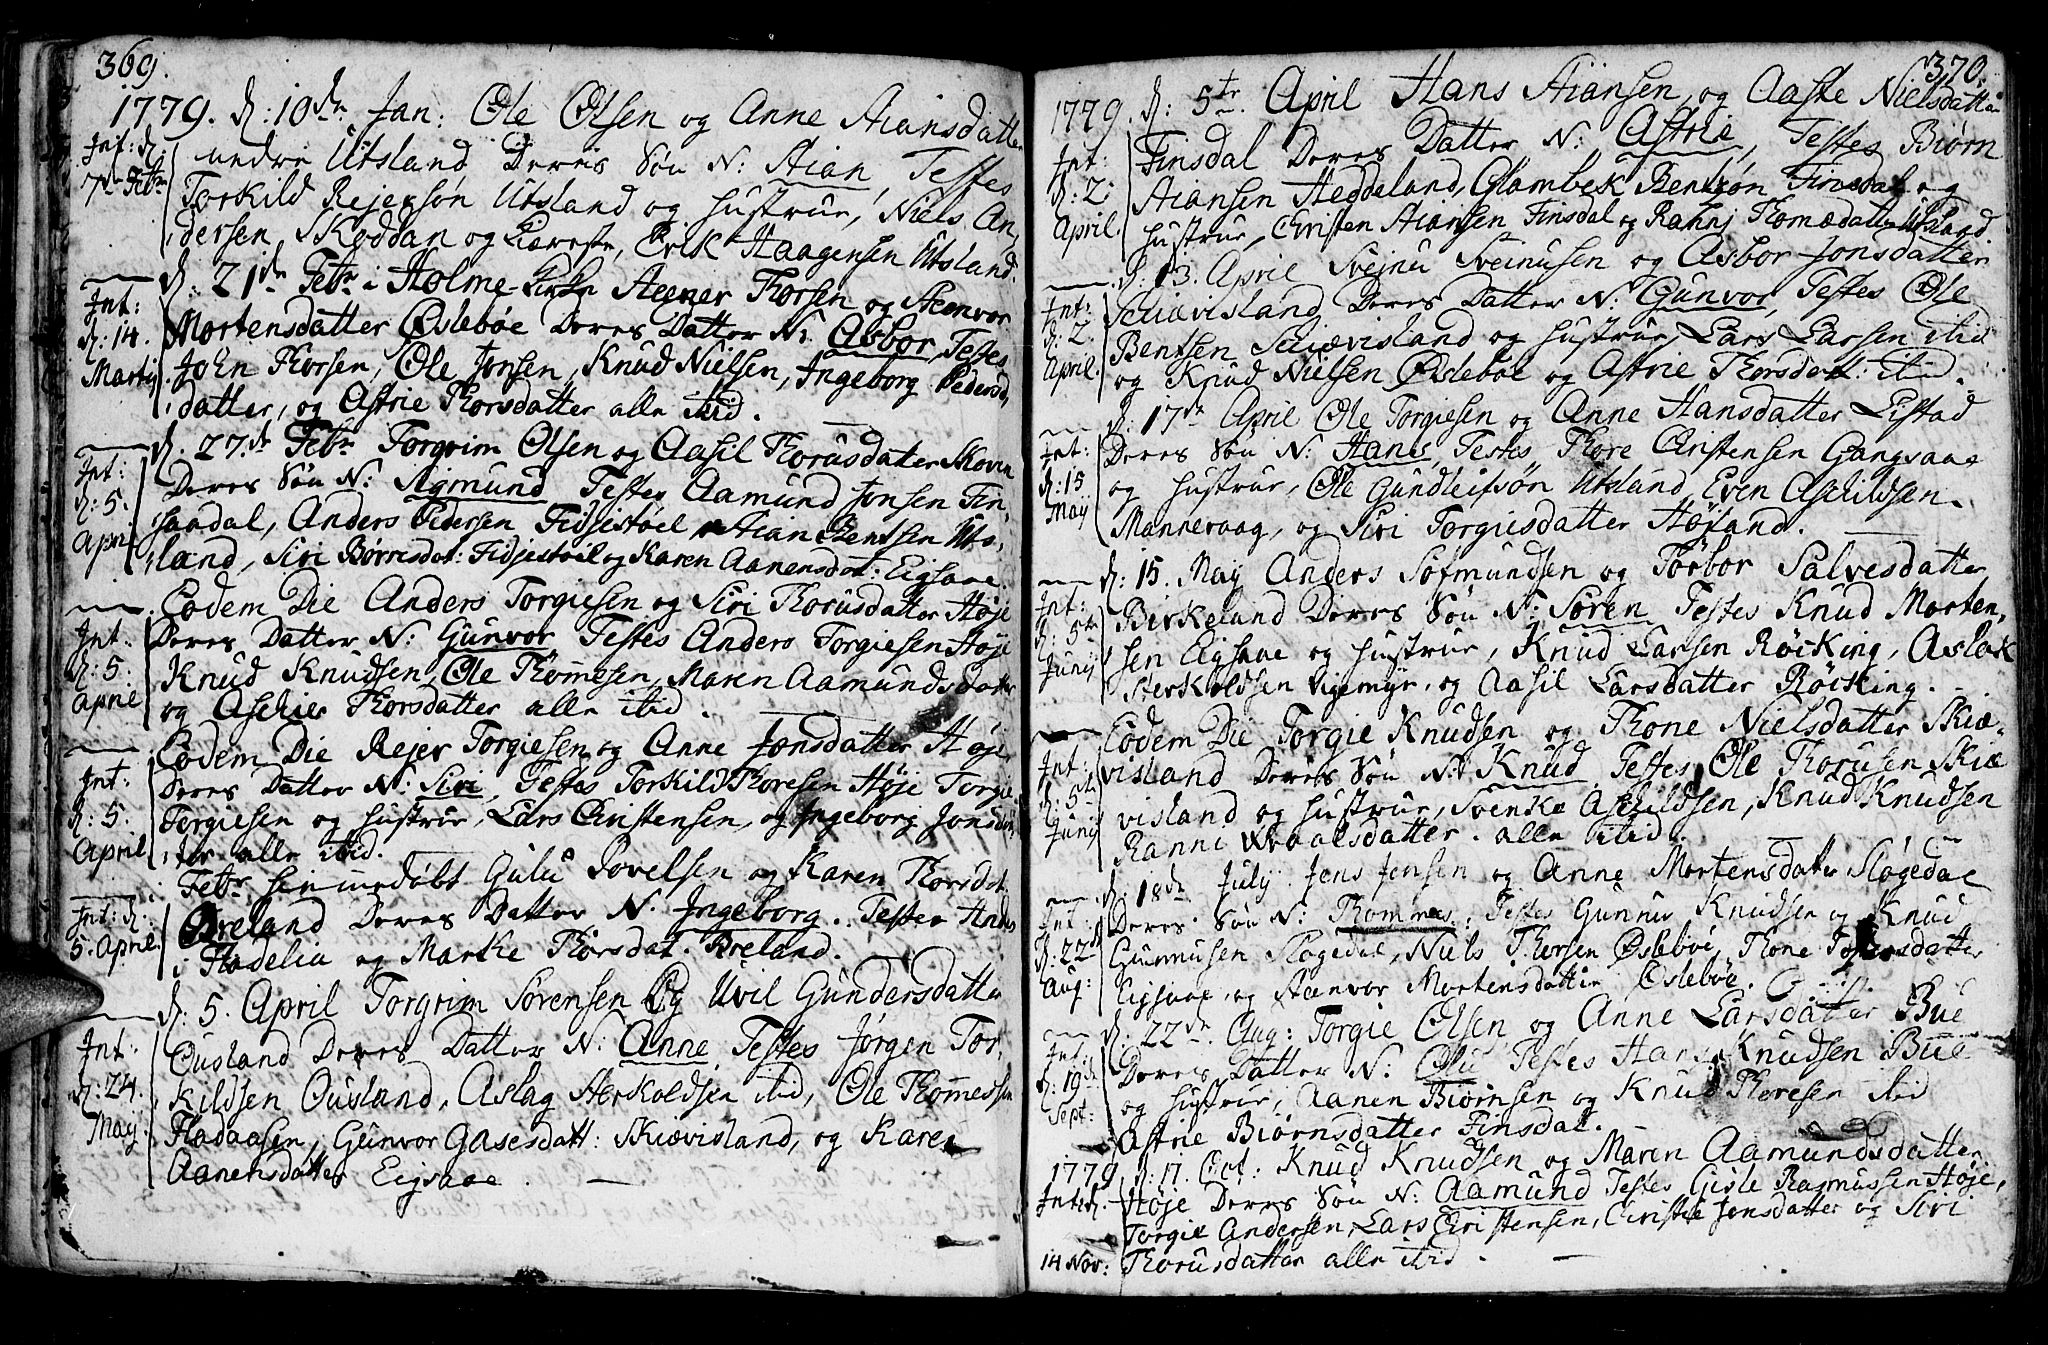 369.
1779. d: 10de Jan: Ole Olsen og Anne Aiansdatter
Int: d:
7de Febr
nedre Utsland Deres Søn N: Aian, Testes
Torkild Rejersøn Utsland og Hustrue, Niels An-
dersen Skoddan og Kiæreste, Erik Haagensen Utsland.
d: 21de Febr i Holme-Kirke Steener Thorsen og Steenvor
Int:
d: 14.
Martij
Mortensdatter Øslebøe Deres Datter N: Asbor, Testes
John Thorsen, Ole Jonsen, Knud Nielsen, Ingeborg Peders-
datter, og Astrie Thorsdatter alle ibid.
d. 27de Febr Torgrim Olsen og Aasil Thorusdatter Skoven
Int:
d: 5.
April
Deres Søn N: Sigmund Testes Aamund Jonsen Fin-
saadal, Anders Pedersen Fidjestøel, Aian Bentsen Uts-
land, Siri Børresdat: Fidjestøil og Karen Aanensdat: Eigsaae
Eodem Die Anders Torgiesen og Siri Thorusdatter Høje
Int:
d: 5.
April
Deres Datter N: Gunvor Testes Anders Torgiesen Høje
Knud Knudsen, Ole Thommesen, Maren Aamundsdatter
og Aschier Thorsdatter alle ibid.
Eodem Die Rejer Torgiesen og Anne Jonsdatter Høje
Int:
d: 5.
April
Deres Datter N: Siri, Testes Torkild Thoresen Høje Torgie
Torgiesen og Hustrue, Lars Christensen, og Ingeborg Jonsdat-
ter alle ibid.
Febr hiemmedøbt Gulu Povelsen og Karen Thorsdat:
Int: d:
5. April.
Øreland Deres Datter N. Ingeborg. Testes Anders
i Hadelia og Marthe Thorsdat. Breland.
d: 5. April Torgrim Sørensen Og Uvil Gundersdatter
Int:
d: 24.
Maij.
Ousland Deres Datter N: Anne, Testes Jørgen Tor-
kildsen Ousland, Aslag Sterkoldsen ibid, Ole Thommessen
Hadaasen, Gunvor Gasesdatt: Skiævisland, og Karen
Aanensdatter Eigsaae.
370.
1779. d: 5te April Hans Aiansen og Aaste Nielsdatter
Int:
d: 2.
April.
Finsdal Deres Datter N: Astrie, Testes Biørn
Aiansen Heddeland, Glambek Bentsøn Finsdal og
Hustrue, Christen Aiansen Finsdal og Ranni Thomædatter Utsland
d. 13. April Svejnu Sveinusen og Asbor Jonsdatter
Int:
d: 2.
April.
Skiævisland Deres Datter N: Gunvor, Testes Ole
Bentsen Skiævisland og Hustrue, Lars Larsen ibid
og Knud Nielsen Øslebøe og Astrie Thorsdatt: ibid.
d. 17de April Ole Torgiesen og Anne Hansdatter Listad
Int:
d: 15
Maij
Deres Søn N: Hans, Testes Thore Christensen Gangsaae
og Hustrue, Ole Gundleifsøn Utsland, Even Aschildsen
Mannevaag, og Siri Torgiusdatter Høiland.
d: 15. Maij Anders Sofmundsen og Tørbor Salvesdatter
Int:
d: 5te
Junij
Birkeland Deres Søn N: Søren Testes Knud Morten-
sen Eigsaae og Hustrue, Knud Larsen Røiking, Aslak
Sterkoldsen Vigemyr, og Aasil Larsdatter Røiking.
Eodem Die Torgie Knudsen og Thone Nielsdatter Skiæ-
Int:
d: 5te
Junij
visland Deres Søn N: Knud Testes Ole Thorusen Skiæ
visland og Hustrue, Svenke Aschildsen, Knud Knudsen
Ranni Wraalsdatter. alle ibid.
d. 18de Julij Jens Jensen og Anne Mortensdater Støgedal
Int:
d: 22de
Aug:
Deres Søn N: Thommes, Testes Gunnu Knudsen og Knud
Gunnusen Støgedal, Niels Thorsen Øslebøe, Thone datter
Eigsaae, og Stænvor Mortensdatter Øslebøe.
d. 22de Aug: Torgie Olsen og Anne Larsdatter Bue
Int:
d. 19de
Sept:
Deres Datter N: Olu Testes Hans Knudsen Bue
og Hustrue, Aanen Biørnsen og Knud Thoresen ibid
Astrie Biørnsdatter Finsdal.
1779 d. 17. Oct: Knud Knudsen og Maren Aamundsdatter
Int: d.
14 Nov:
Høje Deres Søn N: Aamund Testes Gisle Rasmussen Høje,
Torgie Andersen, Lars Christensen, Christie Jonsdatter og Siri
Thorusdatter alle ibid.